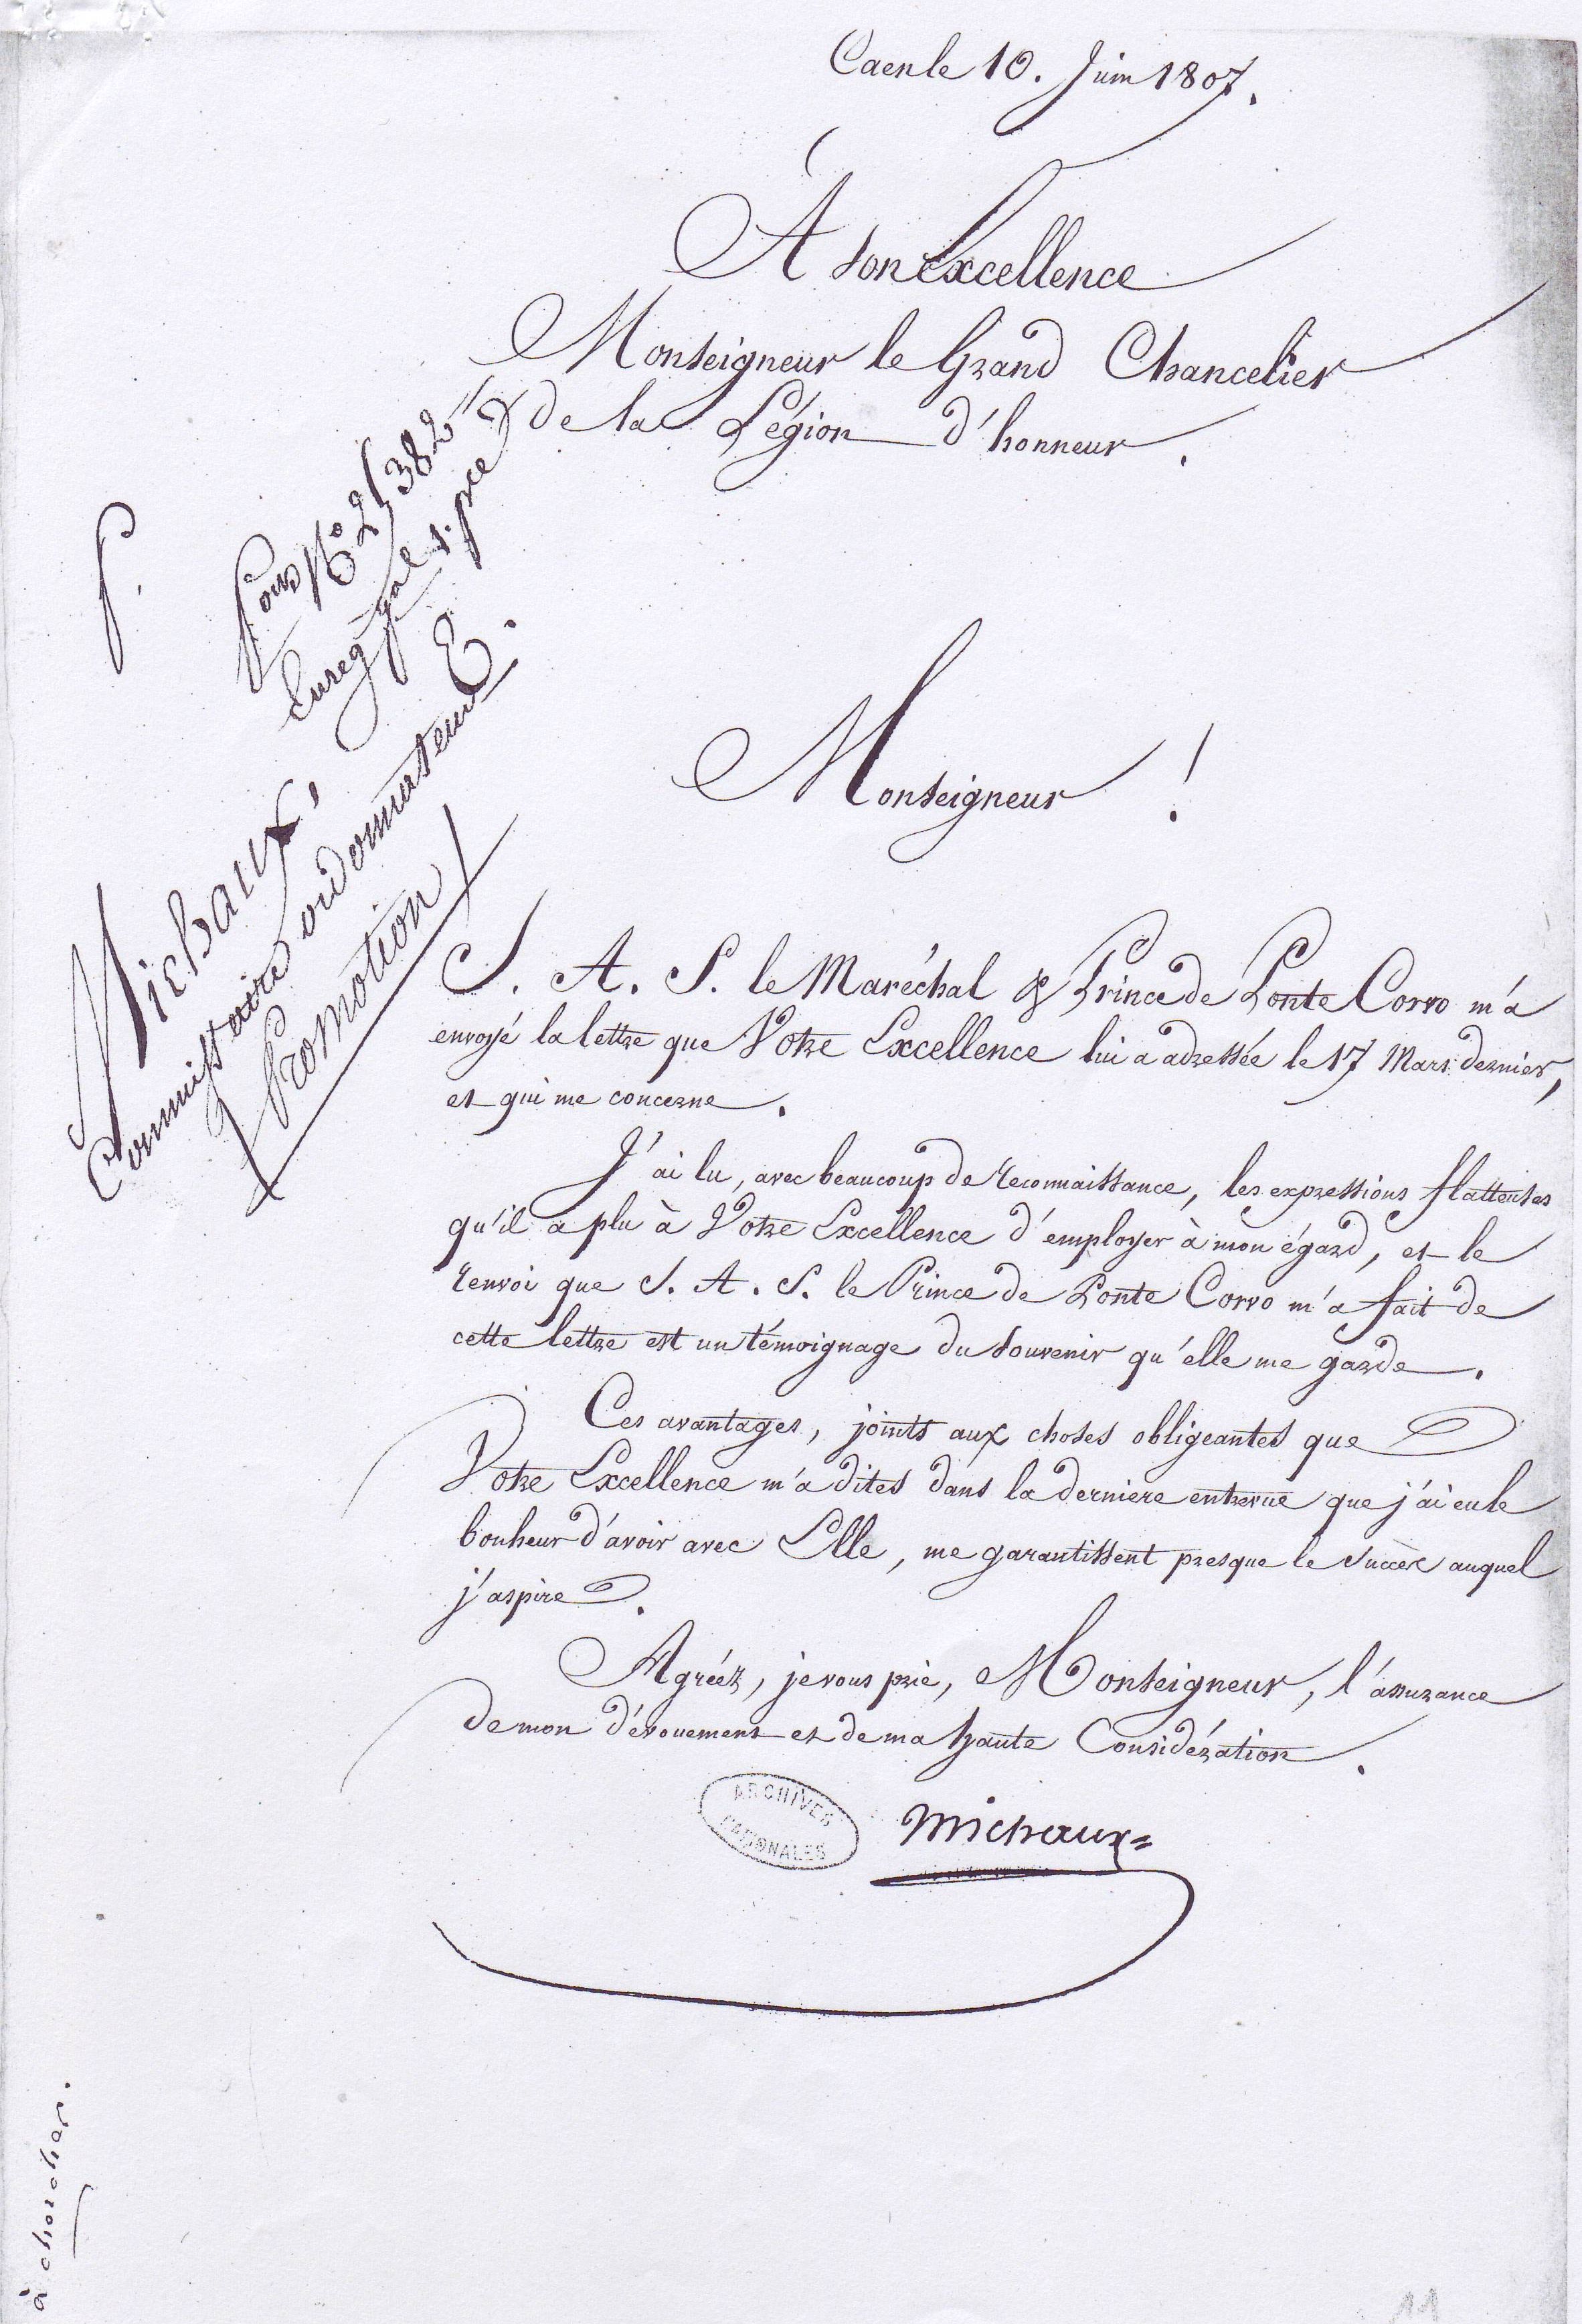 Caen le 10. Juin 1807.
À Son Excellence
Monseigneur le Grand Chancelier
de la Légion d'honneur.
P.
Sous N° 25382
Enreg
Michaux,
Commissaire ordonnateur
Promotion
Monseigneur !
S. A. S. le Maréchal & Prince de Ponte Corvo m'a
envoyé la lettre que Votre Excellence lui a adressée le 17 Mars dernier,
et qui me concerne.
J'ai lu, avec beaucoup de reconnaissance, les expressions flatteuses
qu'il a plu à Votre Excellence d'employer à mon égard, et le
renvoi que S. A. S. le Prince de Ponte Corvo m'a fait de
cette lettre est un témoignage du souvenir qu'elle me garde.
Ces avantages, joints aux choses obligeantes que
Votre Excellence m'a dites dans la derniere entrevue que j'ai eu le
bonheur d'avoir avec Elle, me garantissent presque le succès auquel
j'aspire.
Agréez, je vous prie, Monseigneur, l'assurance
de mon dévouement et de ma haute Considération.
ARCHIVES
NATIONALES
Michaux
à chercher.
11